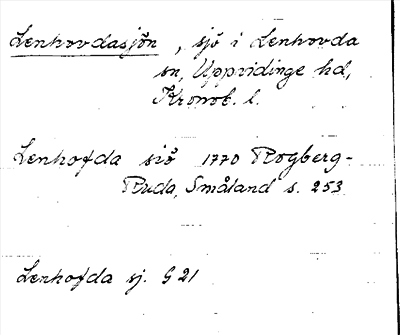 Lenhovdasjön, sjö i Lenhovda
sn, Uppvidinge hd,
Kronob. l.
Lenhofda siö 1770 Rogberg-
Ruda, Småland s. 253
Lenhofda sj. G 21